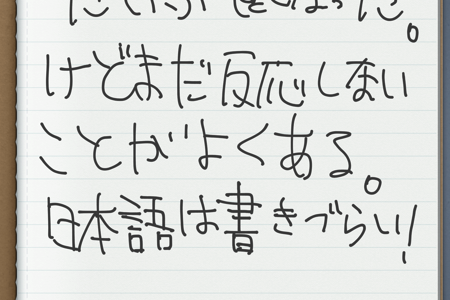 けどまだ反応しない
ことがよくある。
日本語は書きづらい!